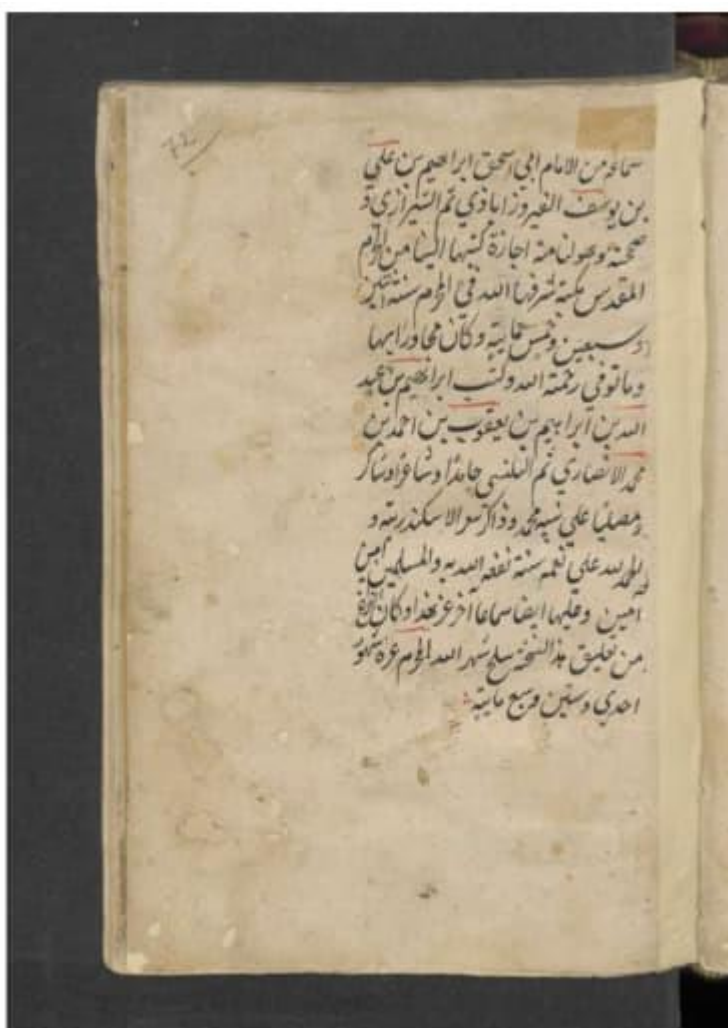 سماعه من الامام ابي اسحق ابراهيم بن علي
بن يوسف الفيروزاباذي ثم الشيرازي و
صحته وهو لنا منه اجازة كتبها الينا من الحرم
المقدس بمكة شرفها الله في المحرم سنة اثنين
وسبعين وخمس مايته وكان مجاورا بها
وماتوفي رحمة الله وكتب ابراهيم بن عبد
الله بن ابراهيم بن يعقوب بن احمد بن
محمد الانصاري ثم البلنسي حامدا وشاكرا
ومصليا علي نبيه محمد الاسكندرية و
لله الحمد علي نعمه سنة نفعه الله به والمسلمين امين
امين وعليها ايضا سماعا آخر وكان
من تعليق هذا النسخة سلخ شهر الله المحرم غرة شهور
احدي وستين وسبع مايته